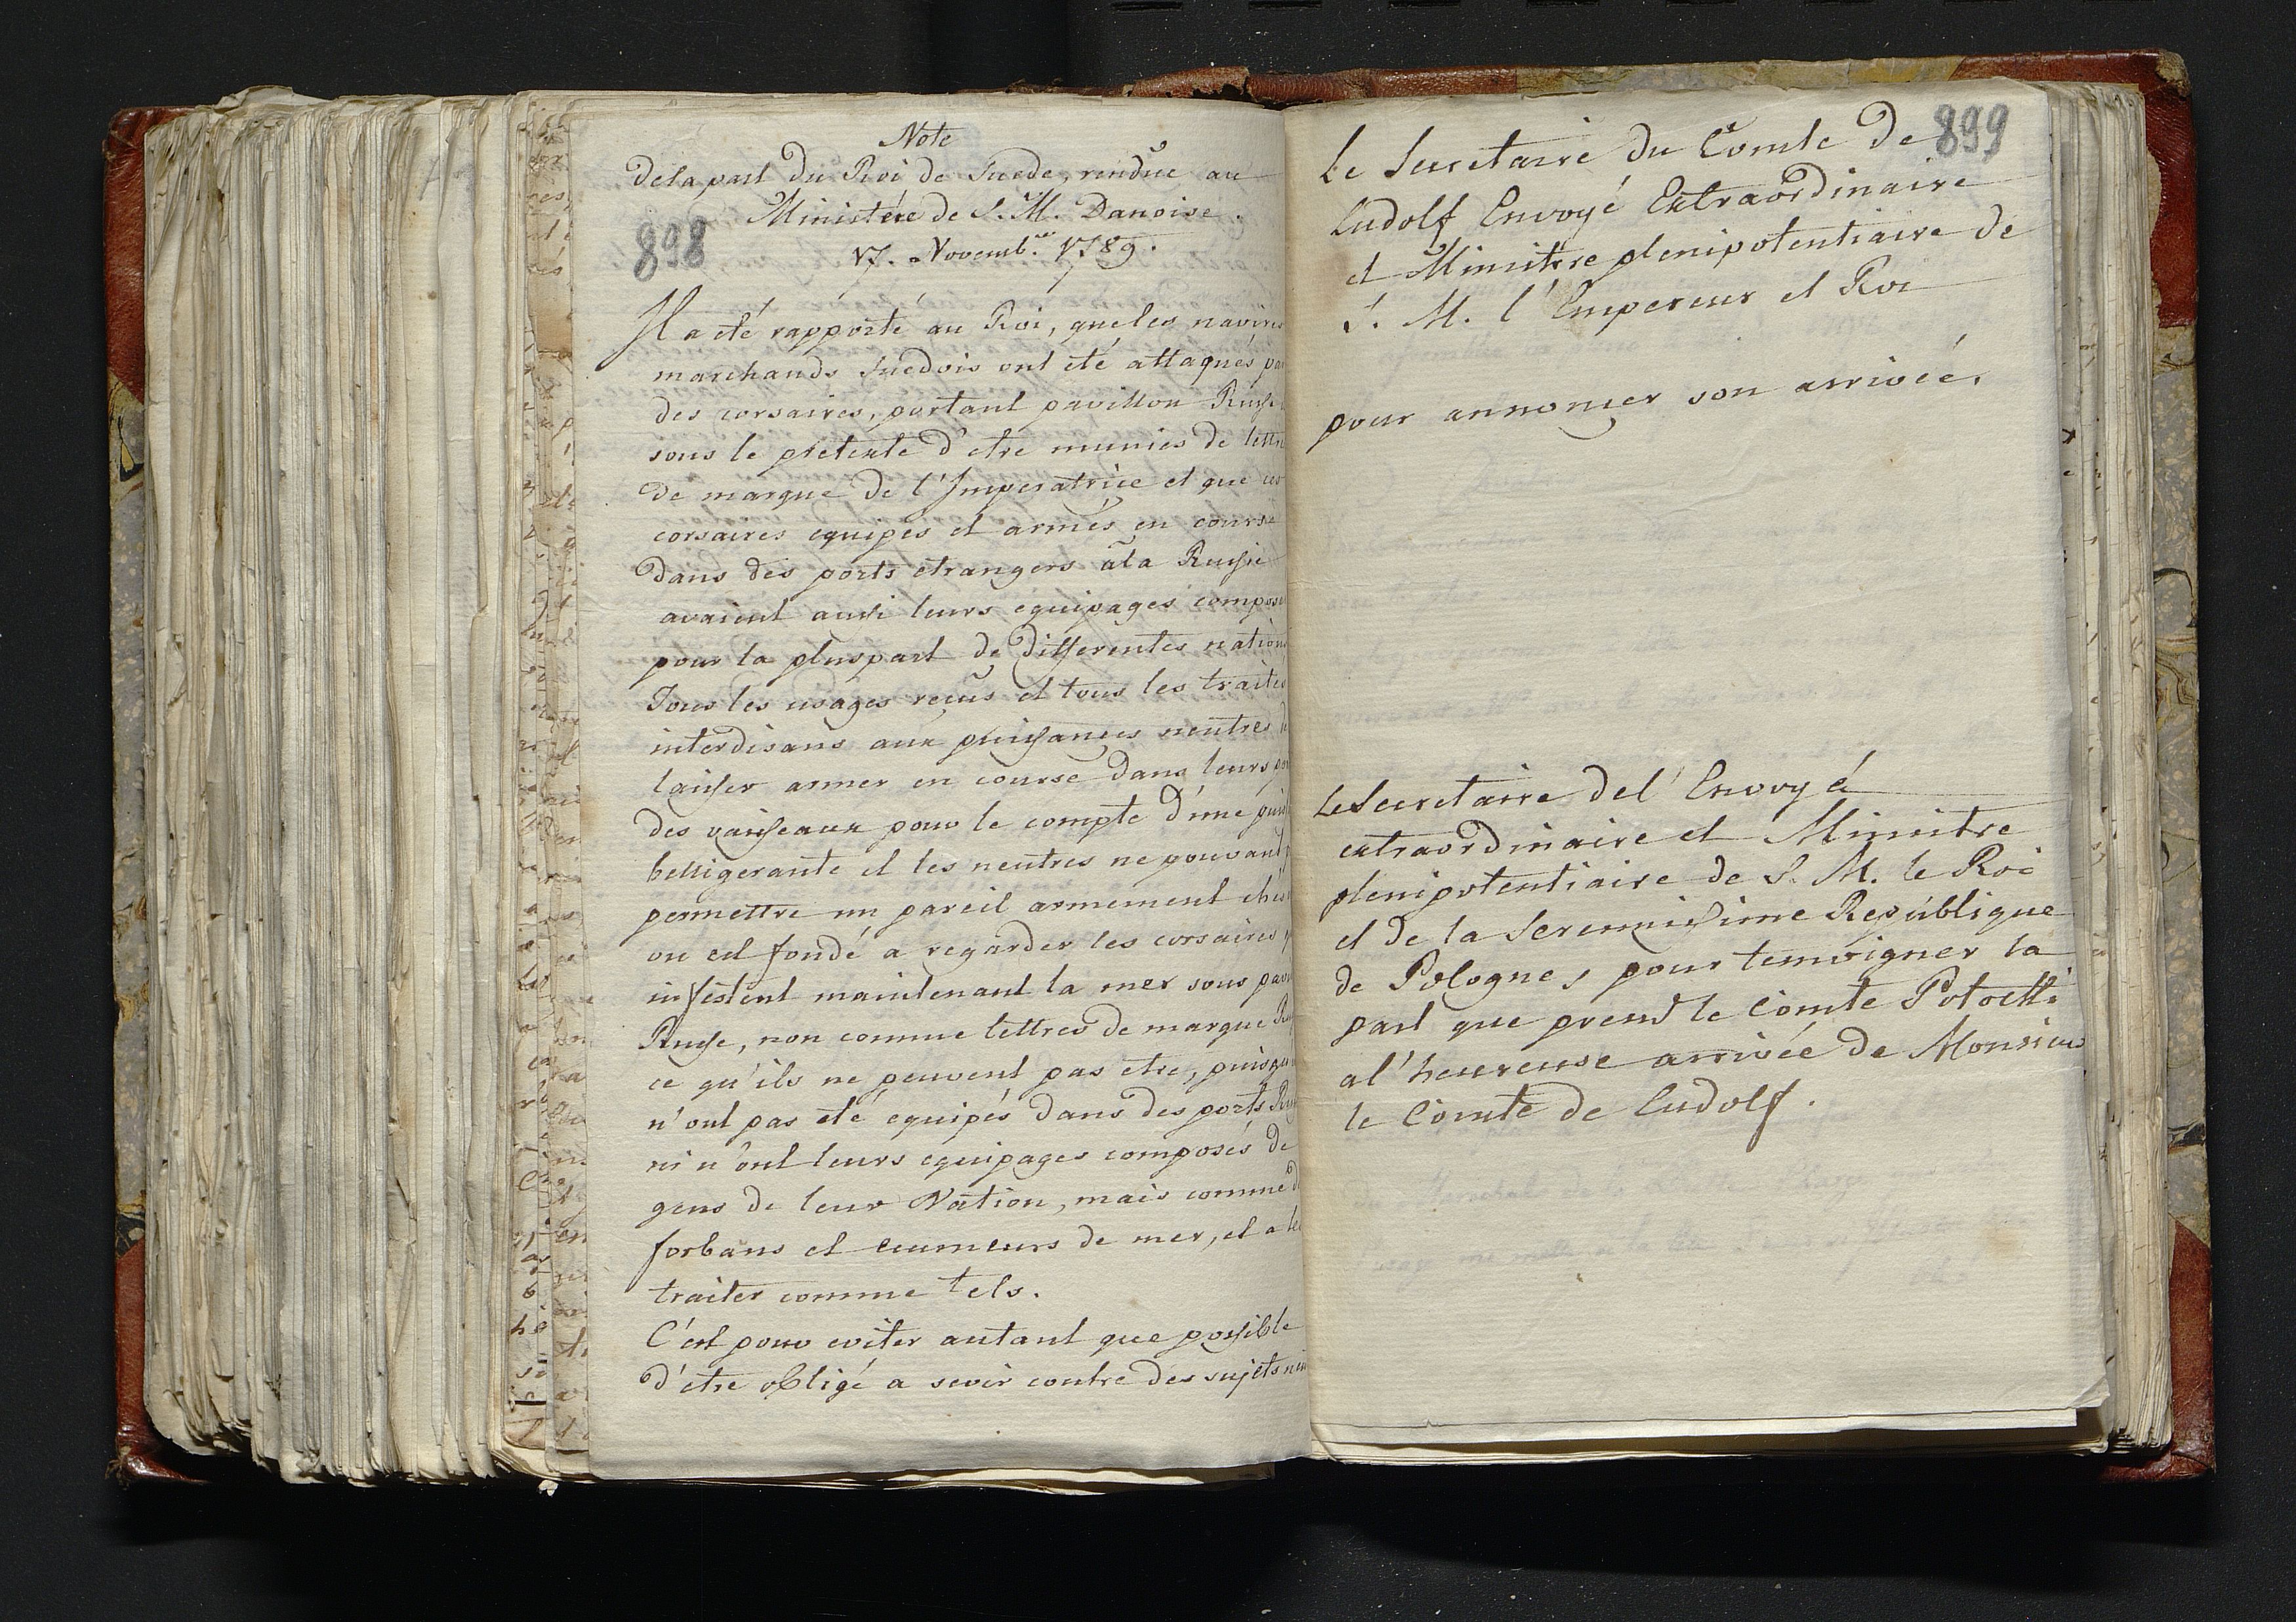 Note
dela part du Roi de Suede, rendüe au
Ministére de S. M. Danoise.
898
17. Novemb. 1789.
Il a eté rapporté au Roi, queles navires
marchands Suedois ont été attaqués par
des corsaires, portant pavillon Russe
sous le prétexte d'etre munies de lettre
de marque de l'Imperatrice et que ces
corsaires equipés et armés en course
dans des ports etrangers àla Russie
avaient aussi leurs équipages compos
pour la pluspart de differentes nations
Tous les usages reçus et tous les traités
interdisans aux puissances neutres de
laisser armer en course dans leurs por
des vaisseaux pour le compte d'une puis
belligerante et les neutres ne pouvant
permettre un pareil armement chés
on est fondé a regarder les corsaires q
infestent maintenant la mer sous pav
Russe, non comme lettres de marque Ru
ce qu'ils ne peuvent pas etre, puisqu
n'ont pas eté equipés dans des ports Ru
ni n'ont leurs equipages composés de
gens de leur Nation, mais comme d
forbans et ecumeurs de mer, et a les
traiter comme tels.
C'est pour eviter autant que possible
d'etre obligé a sevir contre des sujets neu
899
Le Secretaire du Comte de
Ludolf Envoyé Extraordinaire
et Ministre plenipotentiaire de
S. M. l'Empereur et Roi
pour annonçer son arrivée.
Le Secretaire del'Envoyé
extraordinaire et Ministre
plenipotentiaire de S. M. le Roi
et de la Serenissime Republique
de Pologne, pour temoigner la
part que prend le Comte Potocki
a l'heureuse arrivée de Monsieur
le Comte de Ludolf.